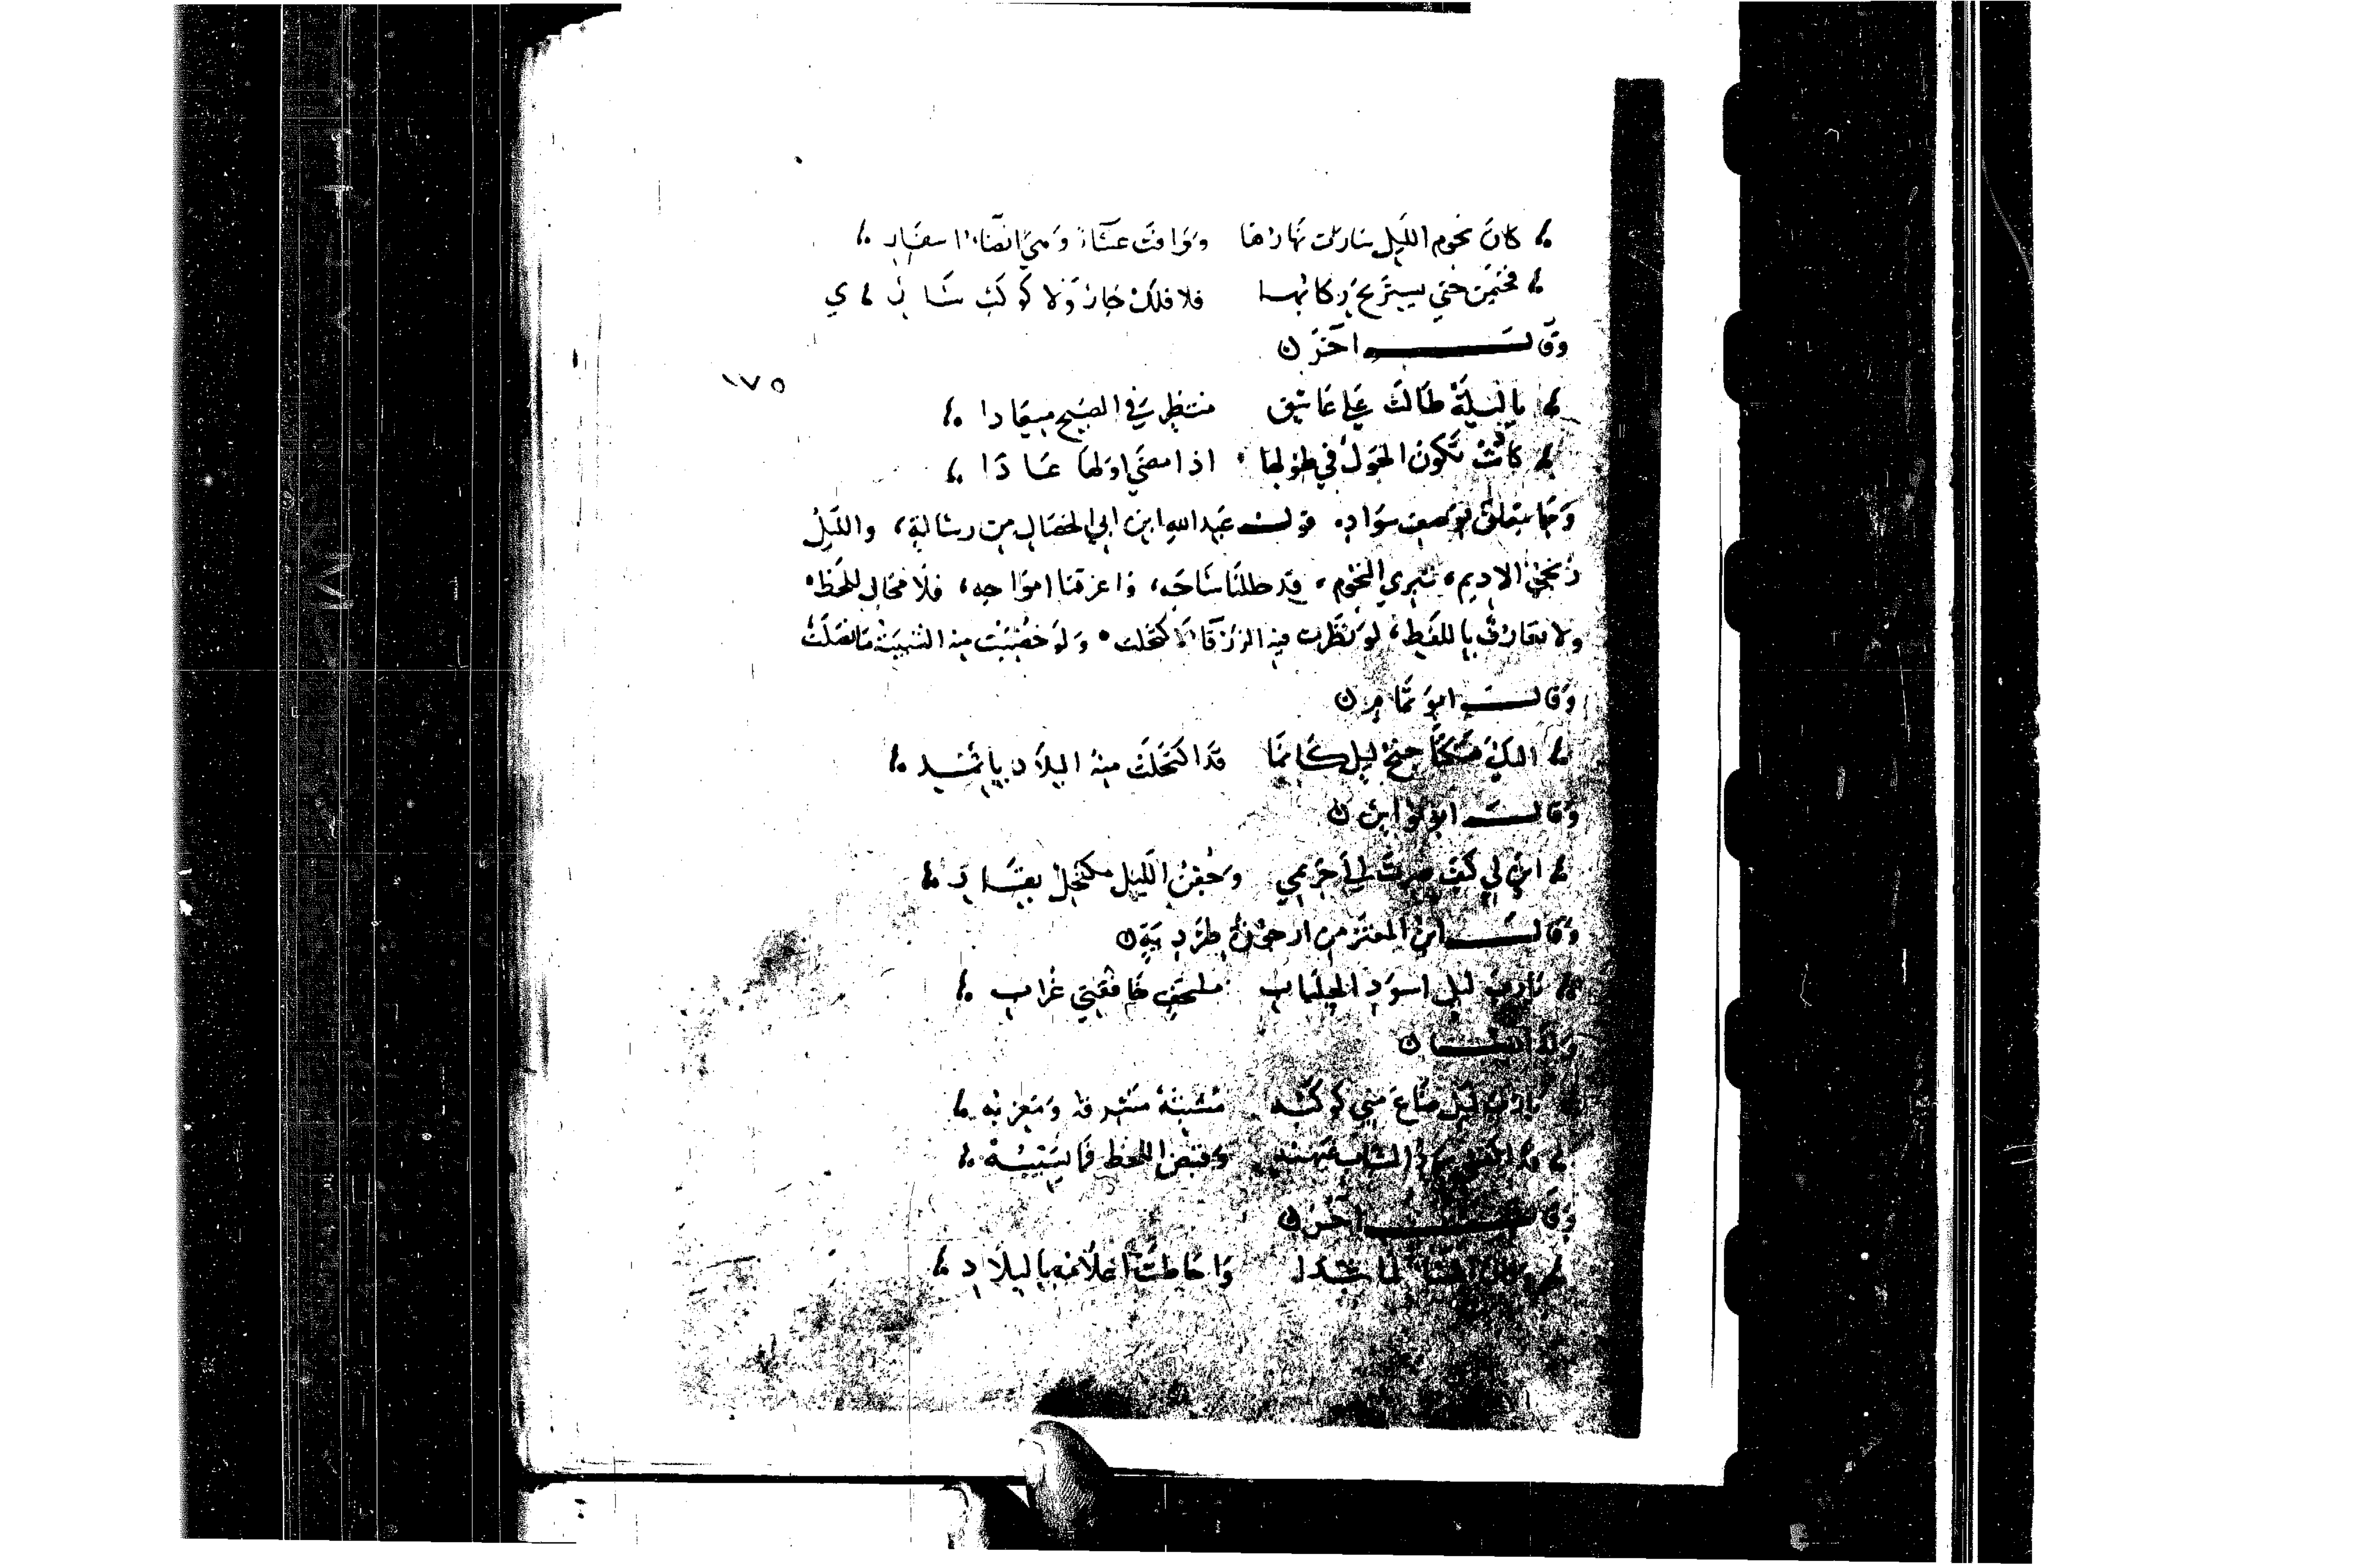 كان نجوم الليل سارت نهارها ووافت عشاء وهي انضاء اسفار
فخيمن حتي يستريح ركابها فلا فلك جار ولا كوكب ساري
وقال آخر
يا ليلة طالت علي عاشق منتظر في الصبح ميعادا
كادت تكون الحول في طولها اذا مضي اولها عادا
١٧٥
ومما يتعلق بوصف سواده قول عبد الله ابن ابي الخصال من رسالة، والليل
زنجي الاديم، تبري النجوم، قد جللنا ساجه، واغرقنا امواجه، فلا مجال للحظ
ولا تعارف بالا للفظ، لو نظرت فيه الزرقاء لاكتحلت ولو خضبت منه الشيبة ما نصلت
وقال ابو تمام
اليك هتكنا جنح ليل كانما قد اكتحلت منه البلاد باثمد
وقال ابو نواس
ابن لي كيف صرت الى حريمي وجفن الليل مكتحل بقار
وقال ابن المعتز من ارجوزة طردية
يا رب ليل اسود الجلباب ملتحف خافقتي غراب
وله ايضا
يا رب ليل ضاع مني كوكبه مشتبه مشرقه ومغربه
وقال آخر
واحاطت احلامه بالبلاد